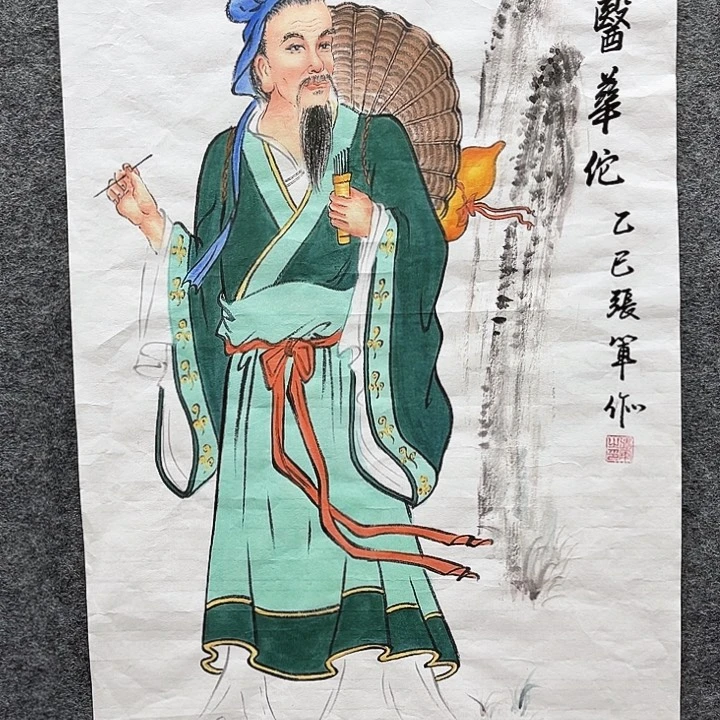 醫華佗
乙巳張軍作